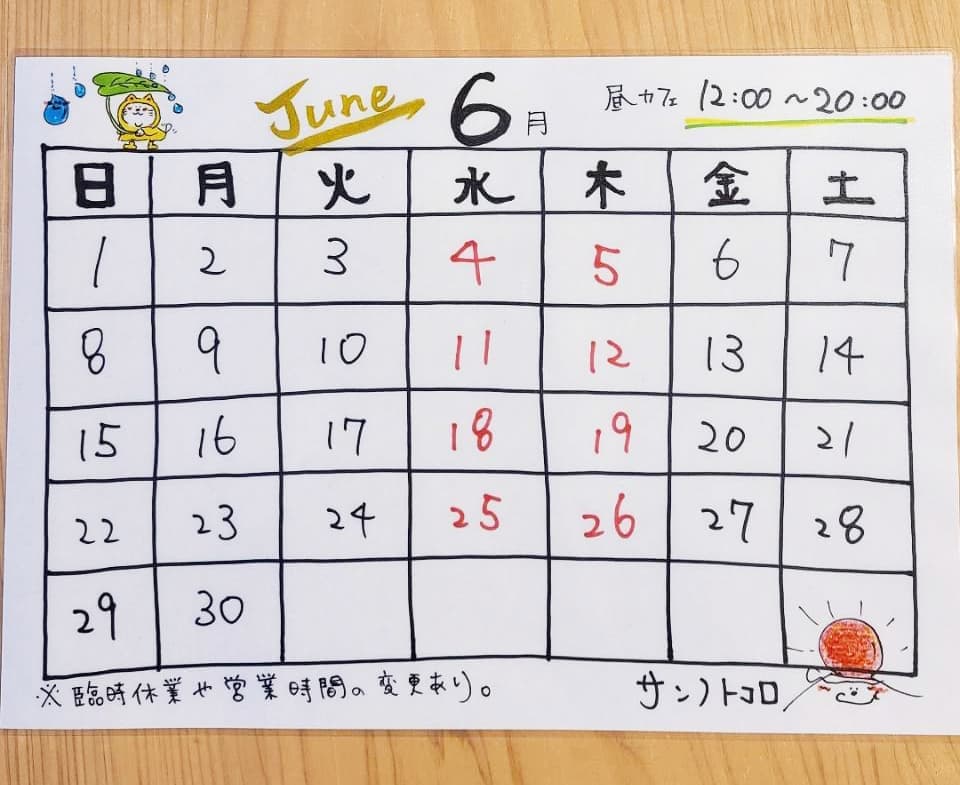 June 6月 昼カフェ 12:00～20:00
日 月 火 水 木 金 土
1 2 3 4 5 6 7
8 9 10 11 12 13 14
15 16 17 18 19 20 21
22 23 24 25 26 27 28
29 30
※臨時休業や営業時間の変更あり。 サンノトコロ